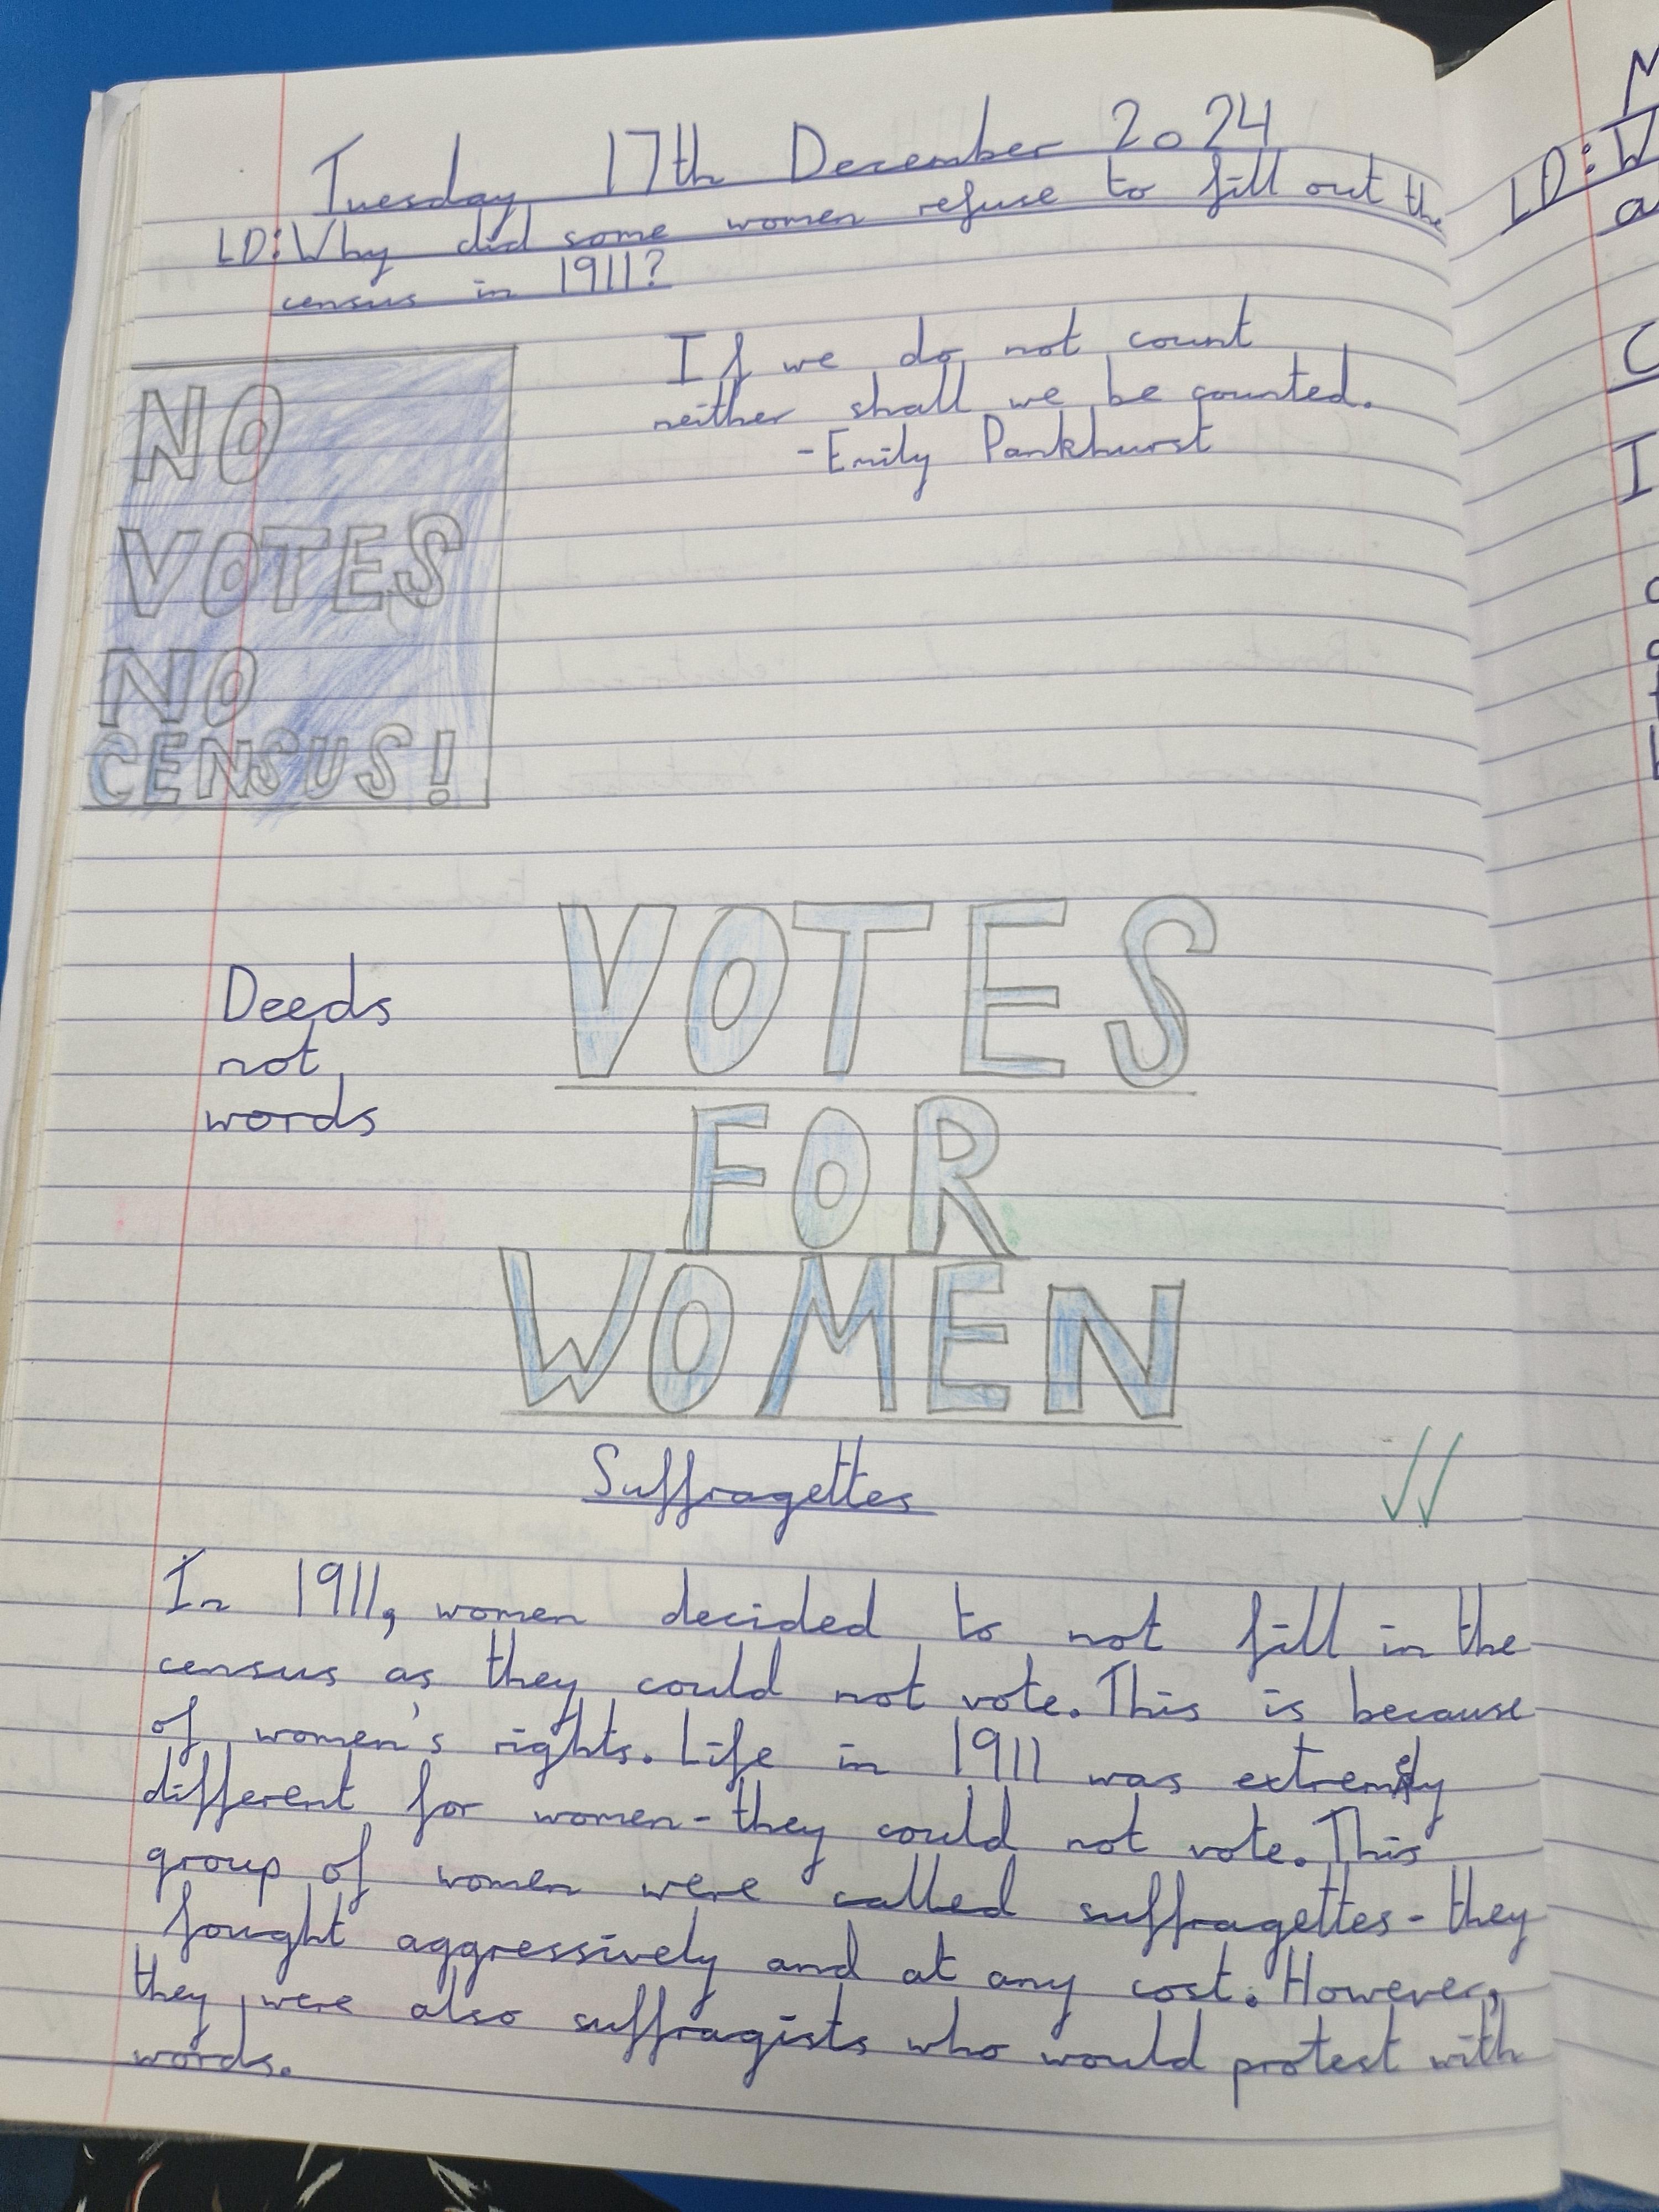 Tuesday 17th December 2024
LD: Why did some women refuse to fill out the
census in 1911?
If we do not count
neither shall we be counted.
- Emily Pankhurst
NO
VOTES
NO
CENSUS!
Deeds
not
words
VOTES
FOR
WOMEN
Suffragettes
In 1911, women decided to not fill in the
census as they could not vote. This is because
of women's rights. Life in 1911 was
different for women - they could not vote. This
group of women were called suffragettes - they
fought aggressively and at any cost. However,
they were also suffragists who would protest with
words.
LD: W
a
C
I